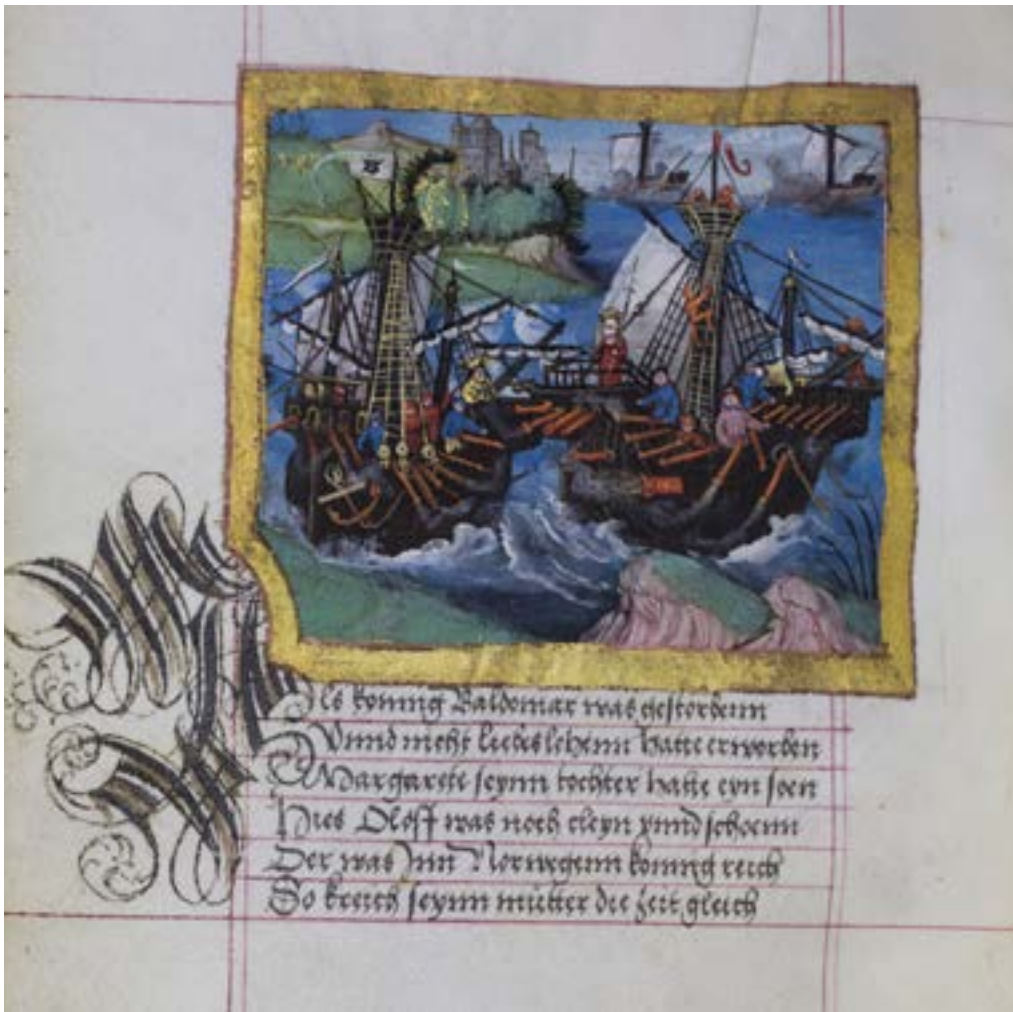 Als koning Waldomar was gestorbenn
Vnnd mehr liebes lehenn hatte erworben
Margarete seynn tochter hatte eyn soen
Hies Oloff was noch cleyn vnnd schoenn
Der was Jnn Norwegenn koning reich
So kreich seynn mutter die zeit gleich